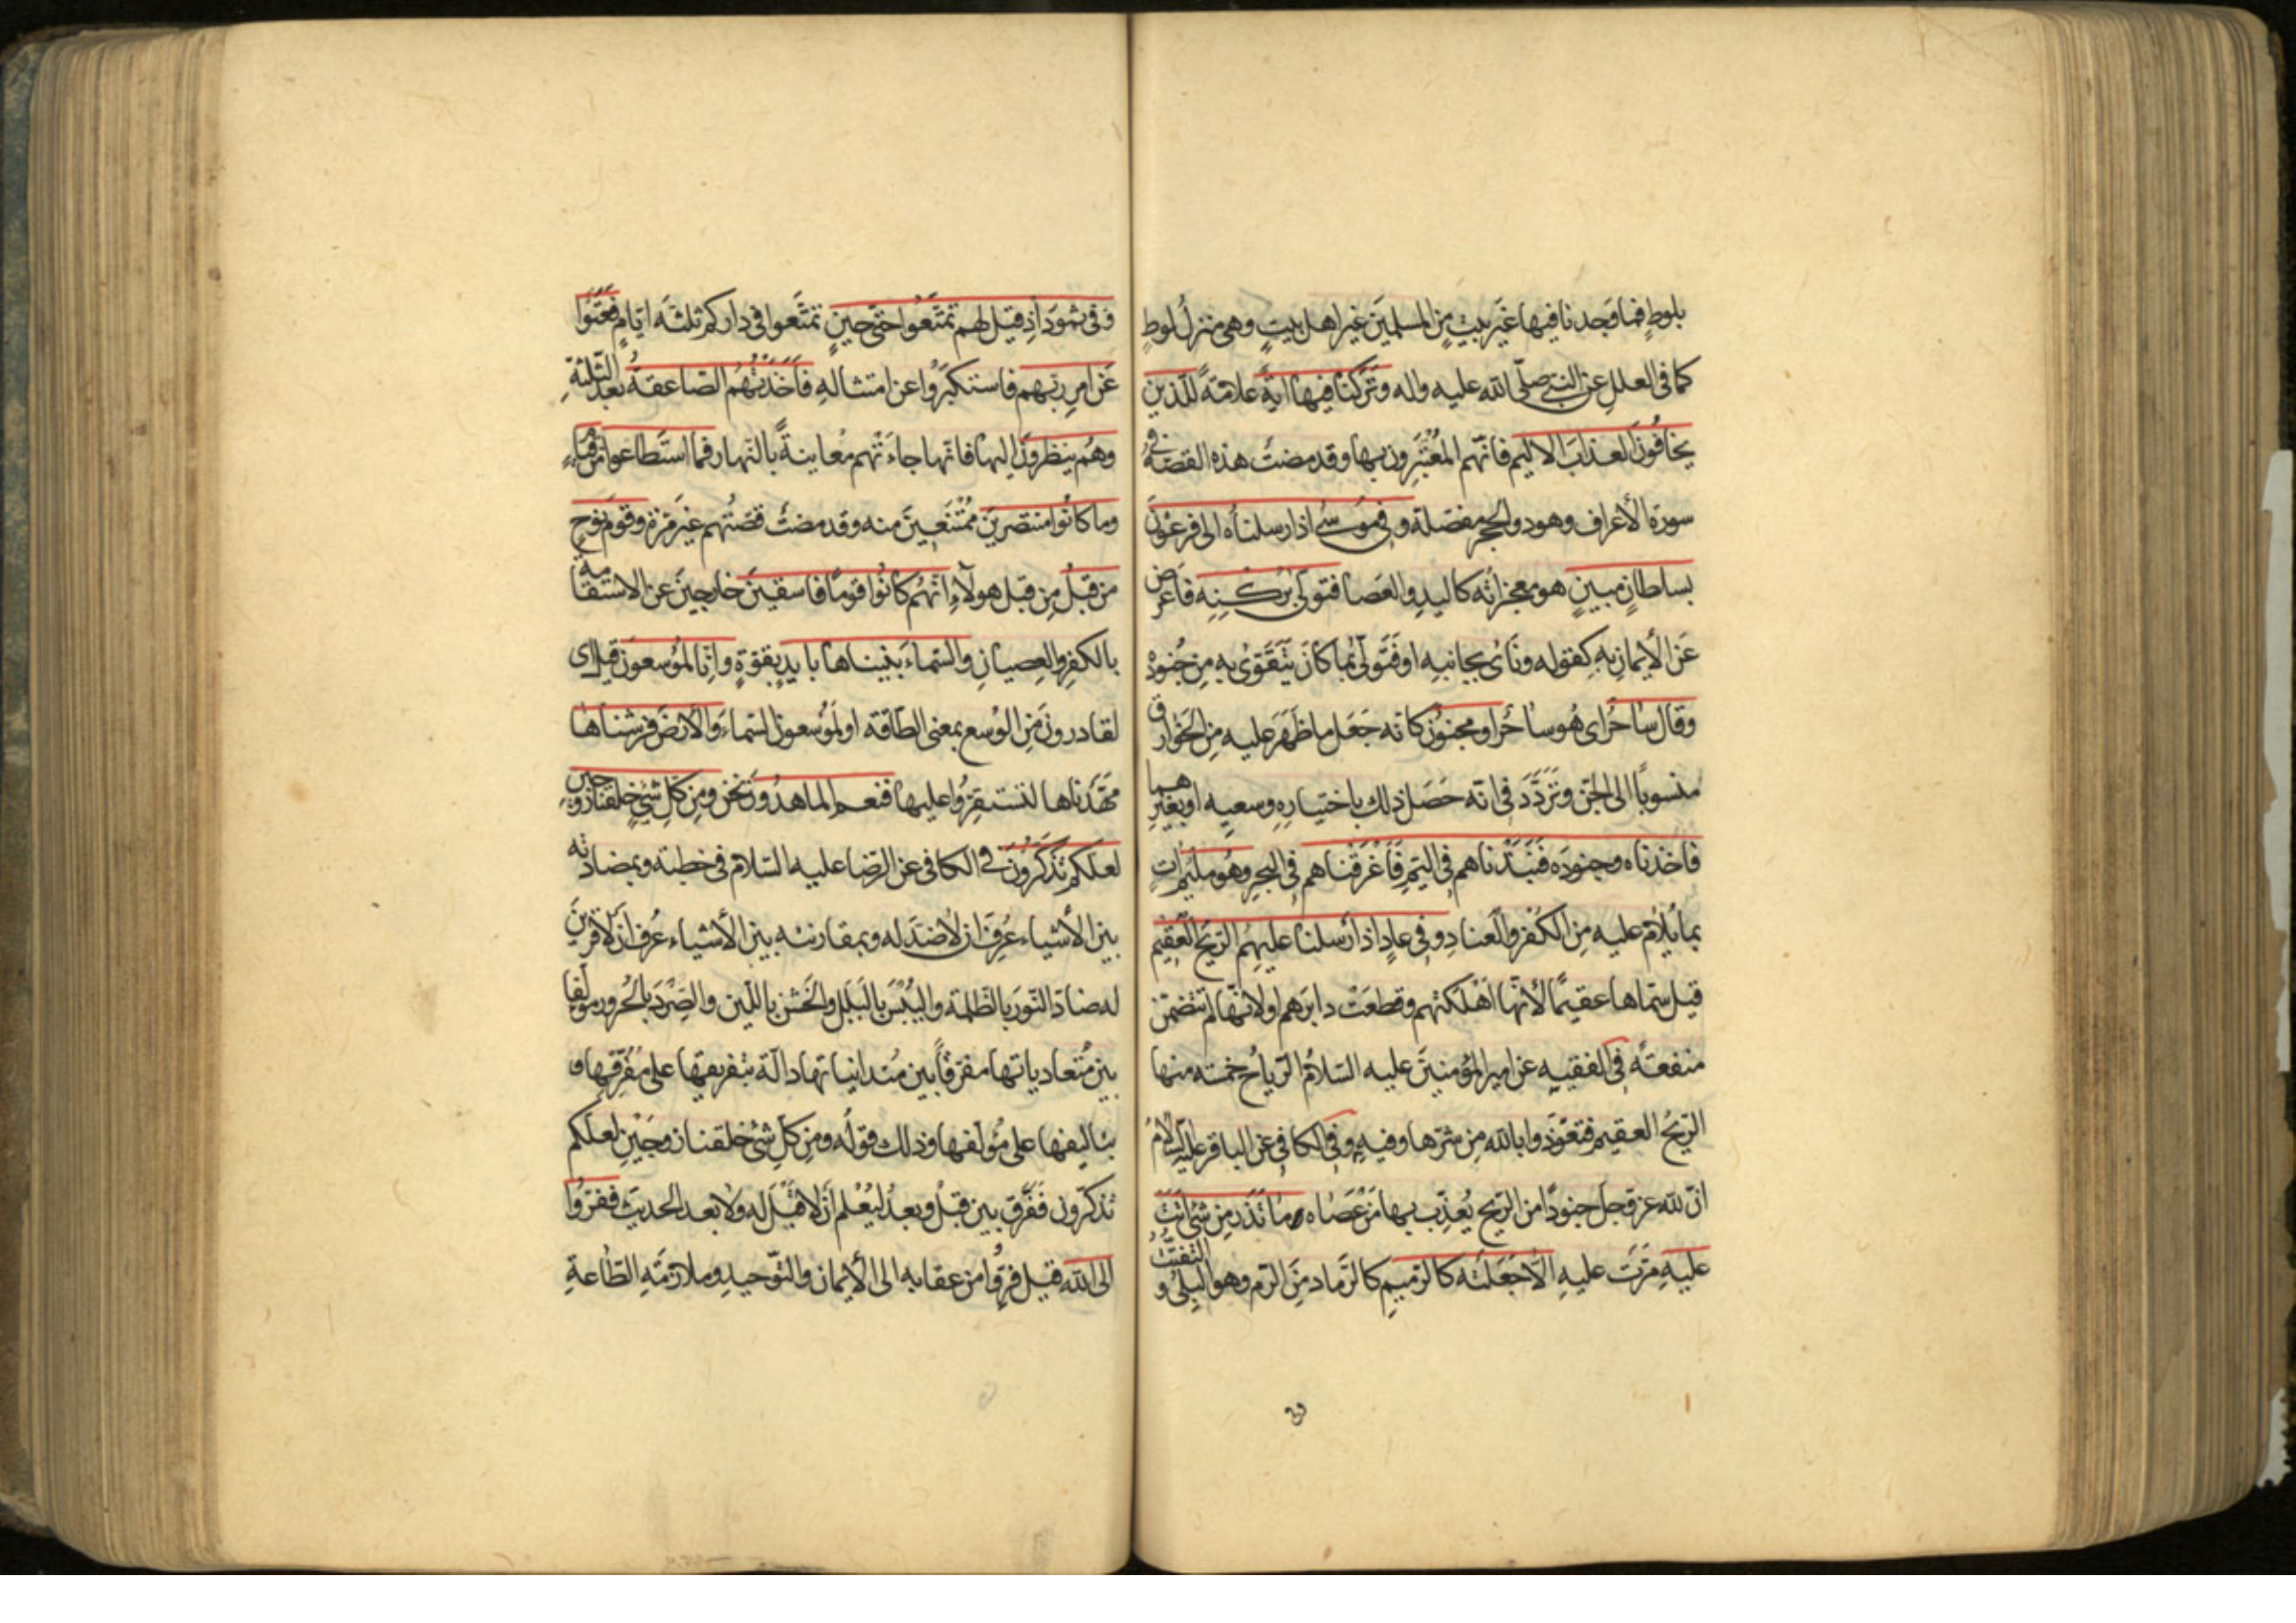 بلوطٍ فما وجدنا فيها غير بيتٍ من المسلمين غير اهل بيتٍ وهى منزل لوط
كما فى العلل عن النبى صلّى الله عليه واله وتركنا فيها اية علامةً للّذين
يخافون العذاب الاليم فانّهم المعتبرون بها وقد مضت هذه القصّة فى
سورة الأعراف وهود والحجر مفصّلة وفى موسى اذ ارسلناه الى فرعون
بسلطانٍ مبينٍ هو معجزاته كاليد والعصا فتولّى بركنه فاعرض
عن الأيمان به كقوله ونأى بجانبه او فتولّى بما كان يتقوّى به من جنوده
وقال ساحر اى هو ساحر او مجنون كانّه جعل ما ظهر عليه من الخوارق
منسوبًا الى الجنّ وتردّد فى انّه حصل ذلك باختياره وسعيه او بغيرهما
فاخذناه وجنوده فنبذناهم فى اليمّ فاغرقناهم فى البحر وهو مليم اتٍ
بما يلام عليه من الكفر والعناد وفى عادٍ اذ ارسلنا عليهم الريح العقيم
قيل سمّاها عقيمًا لأنّها اهلكتهم وقطعت دابرهم اولانّها لم تتضمّن
منفعةً فى الفقيه عن امير المؤمنين عليه السّلام الرّياح خمسة منها
الرّيح العقيم فتعوّذوا بالله من شرّها وفيه وفى الكافى عن الباقر عليه السّلام
انّ لله عزّ وجلّ جنودًا من الرّيح يعذّب بها من عصاه ما تذر من شئ اتت
عليه مرّت عليه الّا جعلته كالرّميم كالرّماد من الرّم وهو البلى و التفتّت
وفى ثمود اذ قيل لهم تمتّعوا حتّى حينٍ تمتّعوا فى داركم ثلثة ايّام فعتوا
عن امر ربّهم فاستكبروا عن امتثاله فاخذتهم الصّاعقة بعد الثّلثة
وهم ينظرون اليها فانّها جاءتهم معاينةً بالنّهار فما استطاعوا من قيام
وما كانوا منتصرين ممتنعين منه وقد مضت قصّتهم غير مرّة وقوم نوح
من قبل من قبل هولاء انّهم كانوا قومًا فاسقين خارجين عن الاستقامة
بالكفر والعصيان والسّماء بنيناها بايدٍ بقوّةٍ وانّا لموسعون قيل اى
لقادرون من الوسع بمعنى الطّاقة او لموسعون السّماء والارض فرشناها
مهّدناها لتستقرّوا عليها فنعم الماهدون نحن ومن كلّ شئٍ خلقنا زوجين
لعلّكم تذكّرون فى الكافى عن الرّضا عليه السّلام فى خطبة وبمضادّته
بين الأشياء عرف ان لا ضدّ له وبمقارنته بين الأشياء عرف ان لا قرين
له ضادّ النّور بالظّلمة واليبس بالبلل والخشن باللّين والصّرد بالحرور مؤلّفا
بين متعادياتها مفرّقًا بين متدانياتها دالّة بتفريقها على مفرّقها و
بتاليفها على مؤلّفها وذلك قوله ومن كلّ شئ خلقنا زوجين لعلّكم
تذكّرون ففرّق بين قبل وبعد ليعلم ان لا قبل له ولا بعد الحديث ففرّوا
الى الله قيل فرّوا من عقابه الى الأيمان والتّوحيد وملازمة الطّاعة